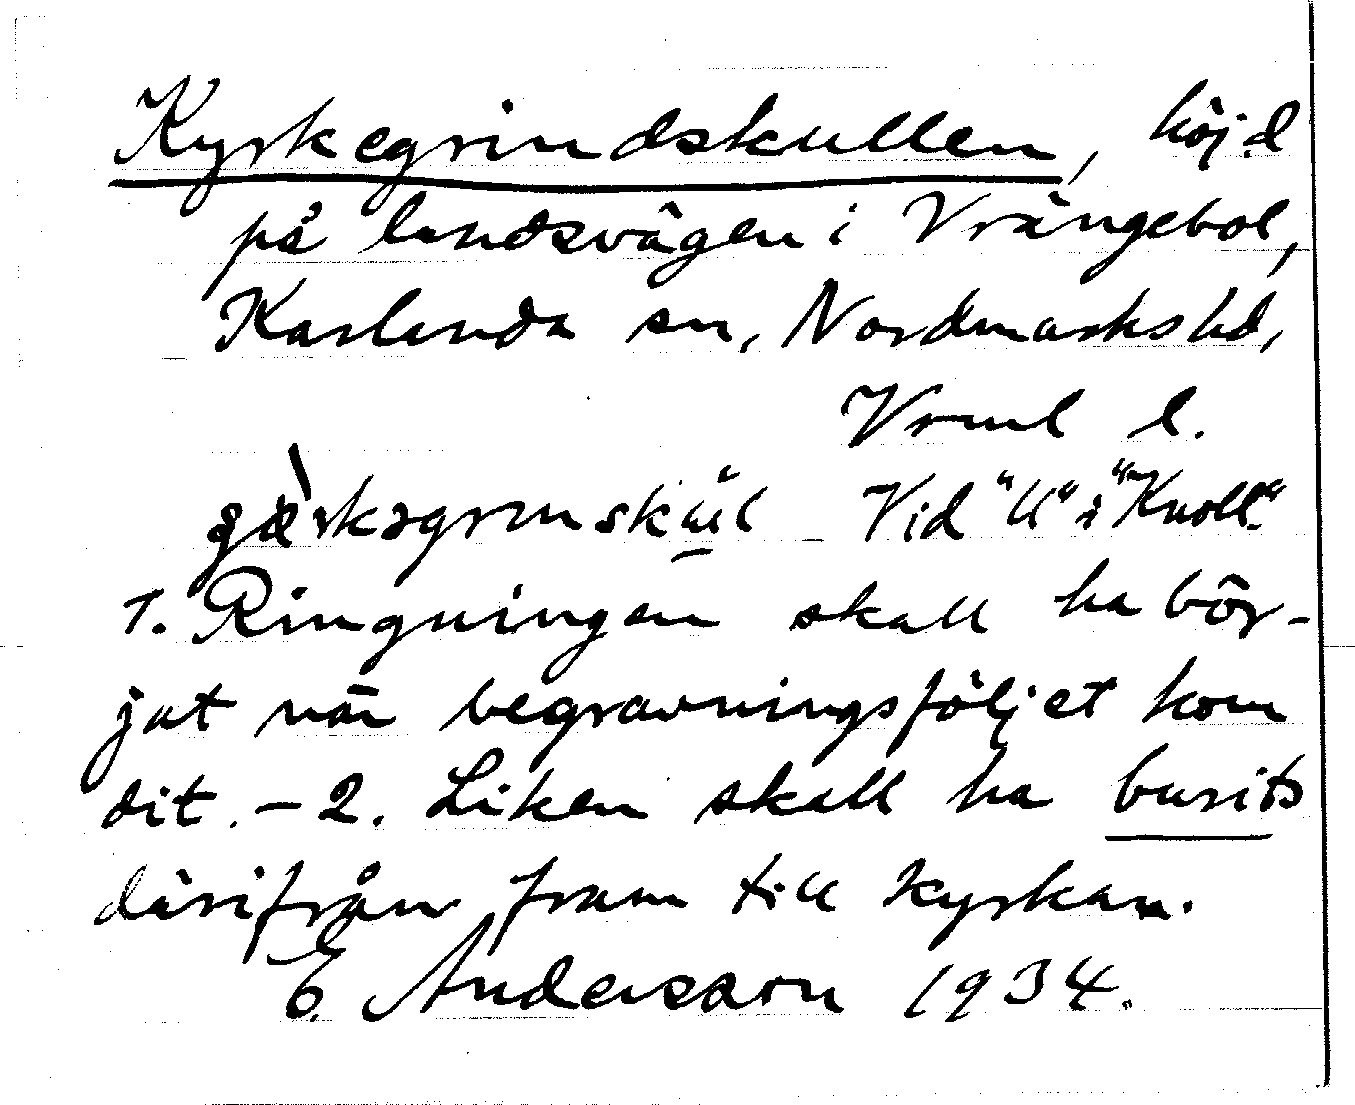 Kyrkegrindskullen, höjd
på landsvägen i Vrängebol,
Karlanda sn, Nordmarks hd,
Vrml l.
Vid "ll" i "Knoll".
1. Ringningen skall ha bör-
jat när begravningsföljet kom
dit. – 2. Liken skall ha burits
därifrån fram till kyrkan.
E. Andersson 1934.